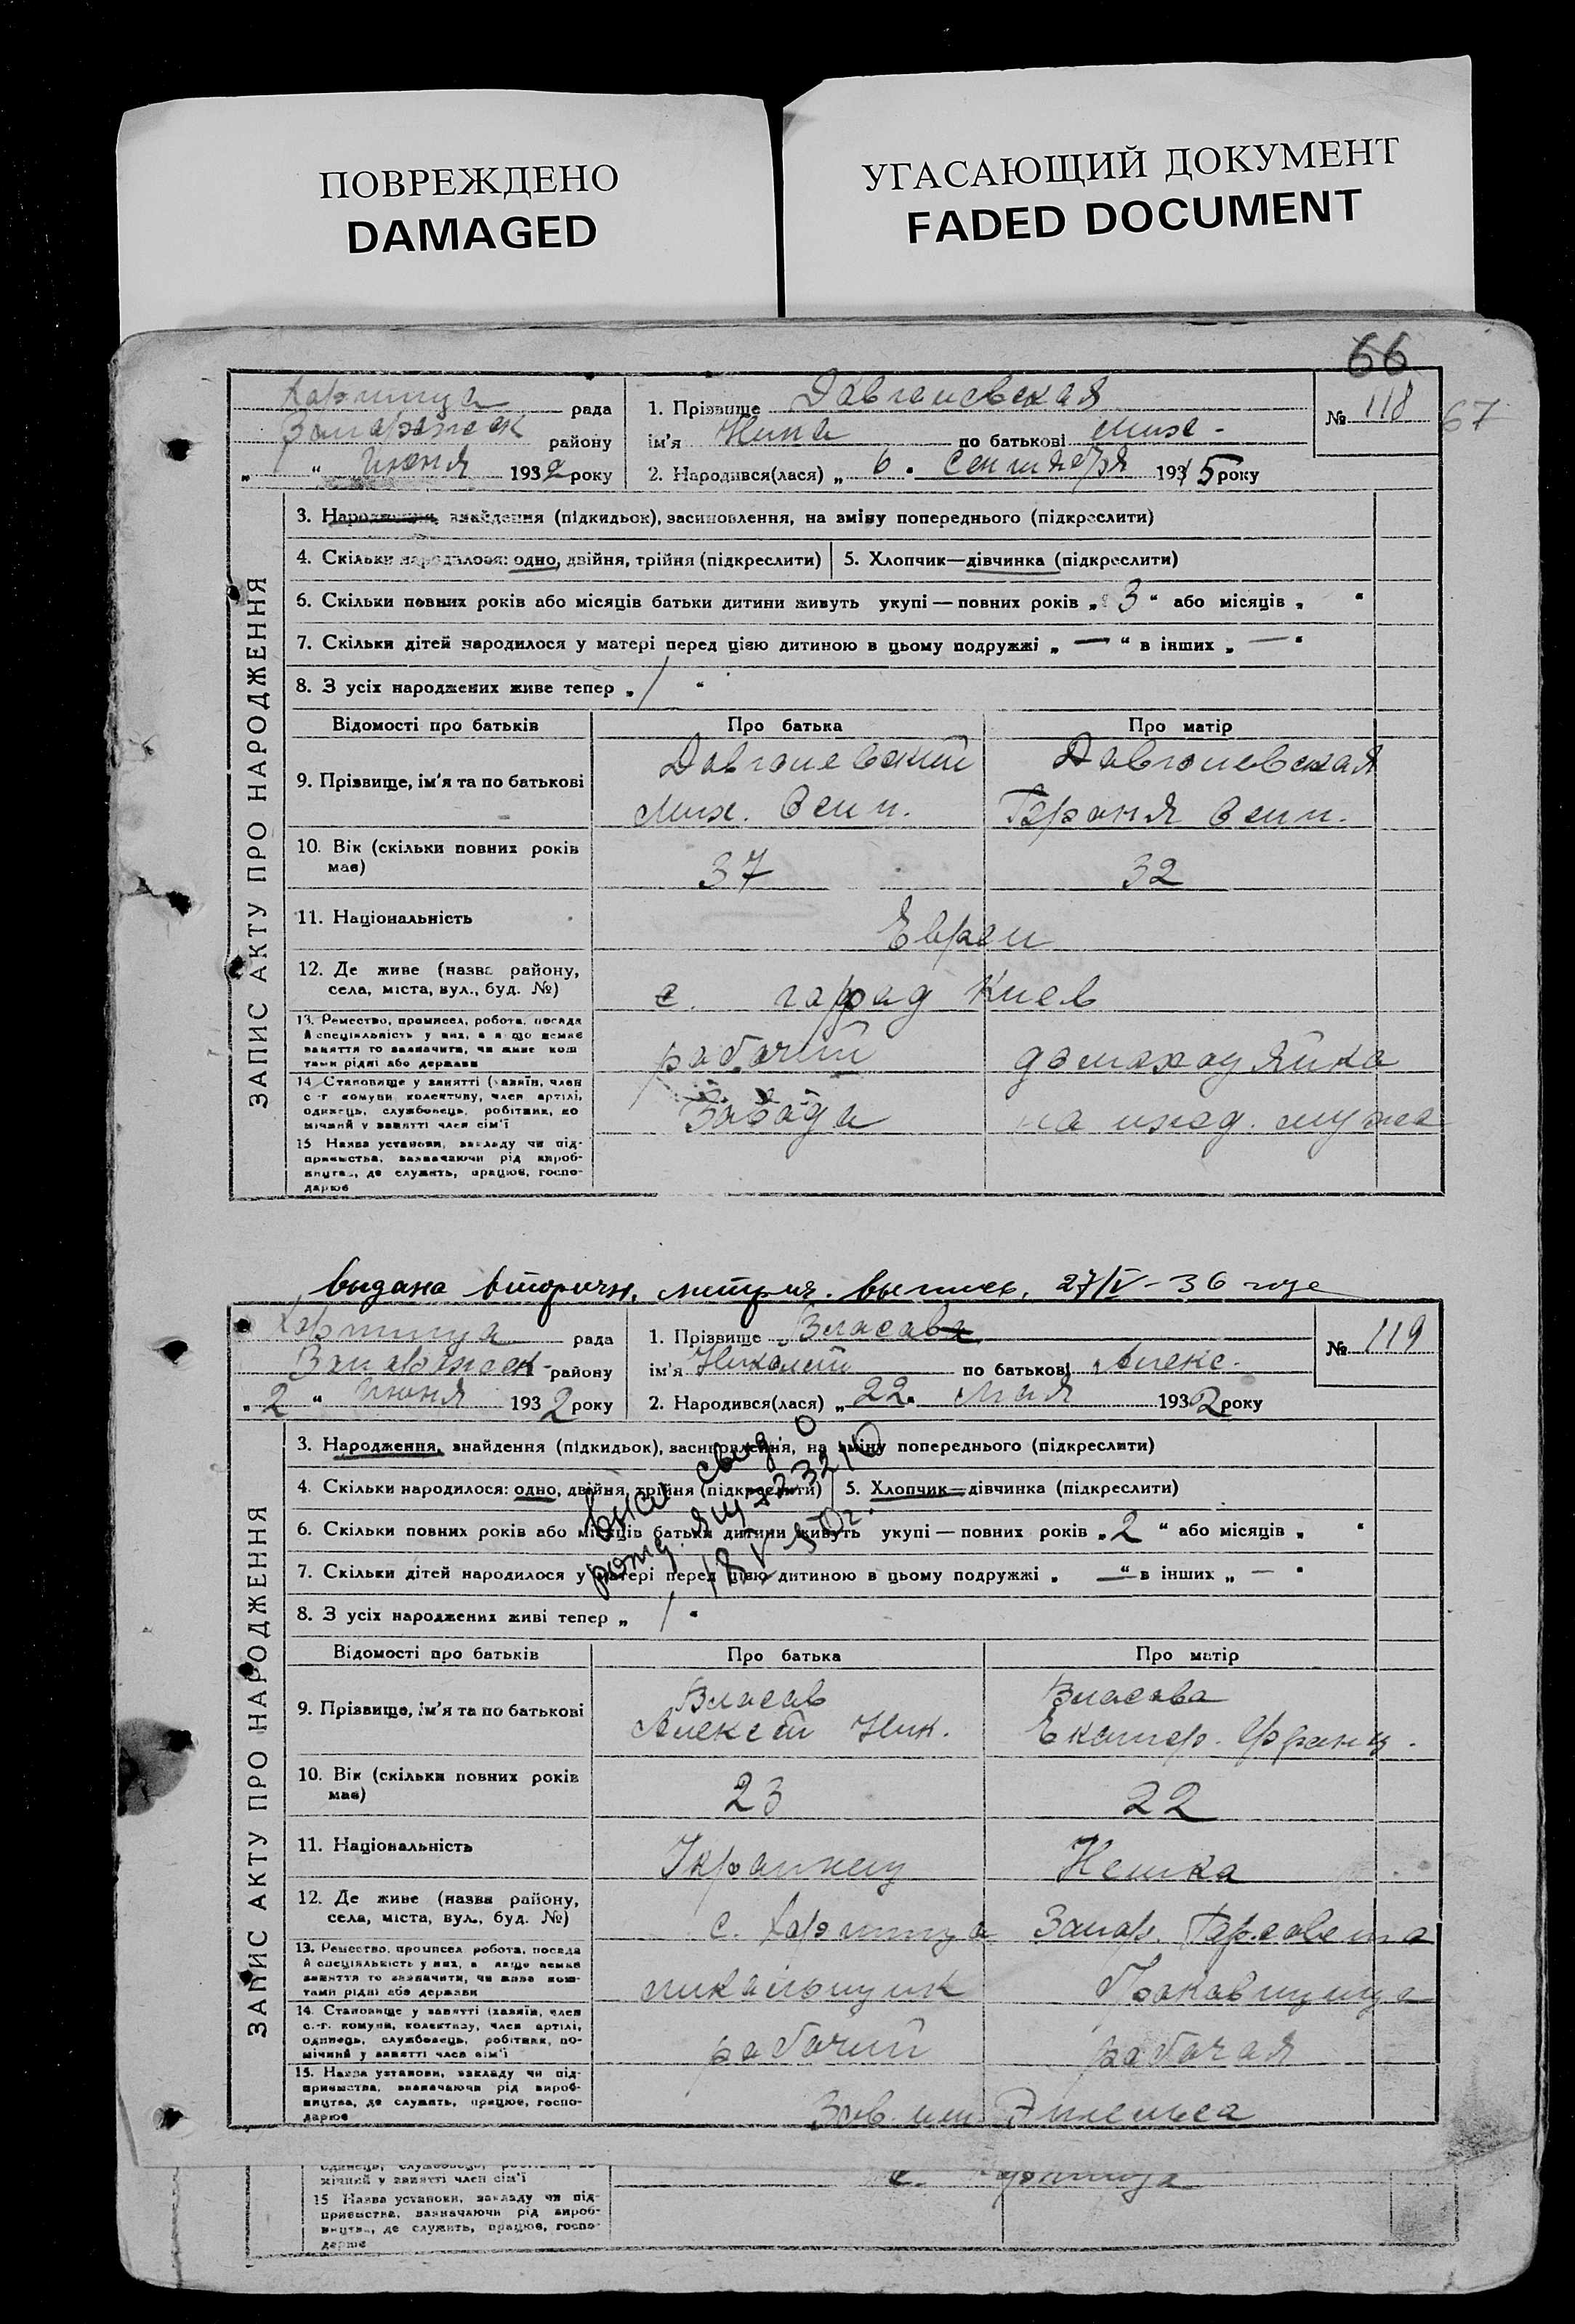 ПОВРЕЖДЕНО
DAMAGED
УГАСАЮЩИЙ ДОКУМЕНТ
FADED DOCUMENT
66
67
ЗАПИС АКТУ ПРО НАРОДЖЕННЯ
Хортица рада
район
" " июня 1932 року
1. Прізвище Давгалевская
ім'я Нина по батькові Мих-
2. Народився(лася) „ 6. сентября 1915 року
№ 118
3. Народження, знайдення (підкидьок), засиновлення, на зміну попереднього (підкреслити)
4. Скільки народилося: одно, двійня, трійня (підкреслити)
5. Хлопчик—дівчинка (підкреслити)
6. Скільки повних років або місяців батьки дитини живуть укупі — повних років „ 3 “ або місяців „ “
7. Скільки дітей народилося у матері перед цією дитиною в цьому подружжі „ — “ в інших „ — “
8. З усіх народжених живе тепер „ 1 “
Відомості про батьків Про батька Про матір
9. Прізвище, ім'я та по батькові
Мих.
10. Вік (скільки повних років має) 37 32
11. Національність Евреи
12. Де живе (назва району, села, міста, вул., буд. №) с. горад Киев
13. Ремество, промисел, робота, посада й спеціяльність у них, а якщо немає заняття то зазначити, чи живе коштами рідні або держави рабочий домохазяйка
14. Становище у занятті (хазяїн, член с.-г. комуни, колективу, член артілі, одинець, службовець, робітник, помічний у занятті член сім'ї Завода на ижд. мужа
15. Назва установи, закладу чи підприємства, зазначаючи рід виробництва, де служить, працює, господарює
выдана вторичн. метрич. выпись, 27/IV-36 года
ЗАПИС АКТУ ПРО НАРОДЖЕННЯ
Хортица рада
району
„ 2 “ июня 1932 року
1. Прізвище Власова
ім'я Николай по батькові Алекс.
2. Народився(лася) „ 22. мая 1932 року
№ 119
3. Народження, знайдення (підкидьок), засиновлення, на зміну попереднього (підкреслити)
4. Скільки народилося: одно, двійня, трійня (підкреслити)
5. Хлопчик—дівчинка (підкреслити)
6. Скільки повних років або місяців батьки дитини живуть укупі — повних років „ 2 “ або місяців „ “
7. Скільки дітей народилося у матері перед цією дитиною в цьому подружжі „ — “ в інших „ — “
8. З усіх народжених живі тепер „ 1 “
свид о
рожд.
18 V 50г.
Відомості про батьків Про батька Про матір
9. Прізвище, ім'я та по батькові
Власав Власава
Алексей Ник. Екатер. Франц.
10. Вік (скільки повних років має) 23 22
11. Національність Украинец Немка
12. Де живе (назва району, села, міста, вул., буд. №) с. Хортица Запор. Горсовета
13. Ремество, промисел, робота, посада й спеціяльність у них, а якщо немає заняття то зазначити, чи живе коштами рідні або держави
14. Становище у занятті (хазяїн, член с.-г. комуни, колективу, член артілі, одинець, службовець, робітник, помічний у занятті член сім'ї рабочий рабочая
15. Назва установи, закладу чи підприємства, зазначаючи рід виробництва, де служить, працює, господарює Зав. им Энгельса
одинець, службовець,
мічний у занятті член сім'ї
15 Назва установи, закладу чи підприємства, зазначаючи рід виробництва, де служить, працює, господарює